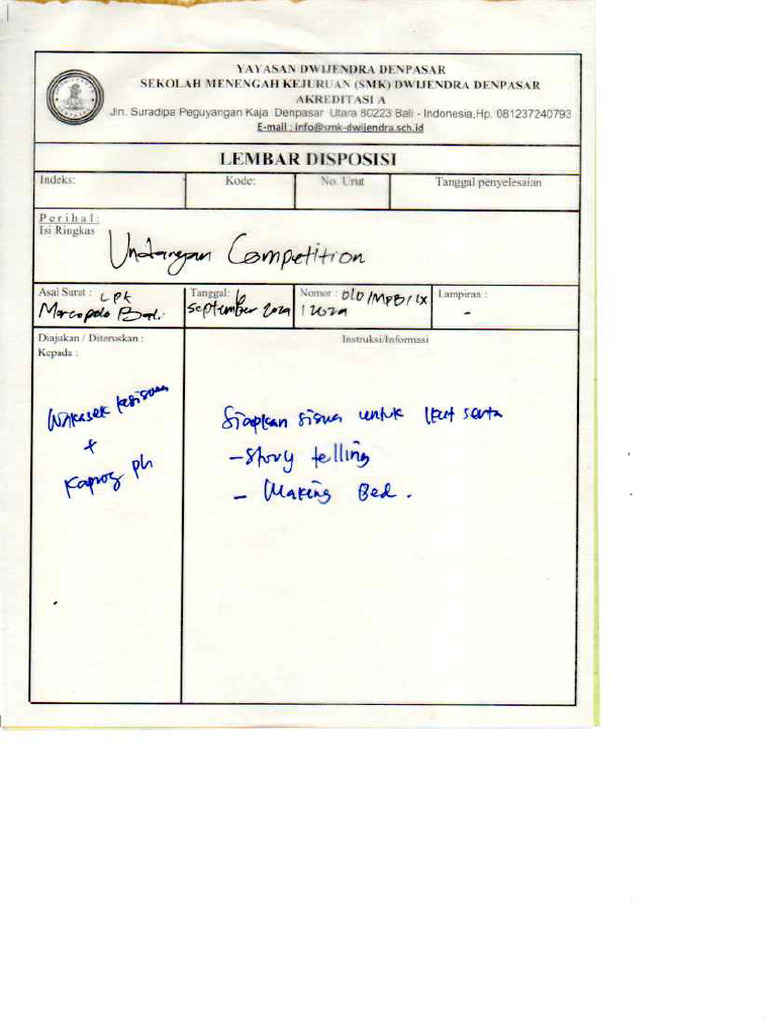 YAYASAN DWIJENDRA DENPASAR
SEKOLAH MENENGAH KEJURUAN (SMK) DWIJENDRA DENPASAR
AKREDITASI A
Jln. Suradipa Peguyangan Kaja Denpasar Utara 80223 Bali - Indonesia,Hp. 081237240793
E-mail : info@smk-dwijendra.sch.id
LEMBAR DISPOSISI
Indeks: Kode: No. Urut Tanggal penyelesaian
Perihal:
Isi Ringkas
Undangan Competition
Asal Surat : LPK
Marcopolo
Tanggal:
September 2024
Nomor : 010/MPB/IX
/ 2024
Lampiran :
-
Diajukan / Diteruskan :
Kepada :
Wakasek kesiswaan
+
Kaprog ph
Instruksi/Informasi
Siapkan siswa untuk ikut serta
- Story telling
- Making Bed.